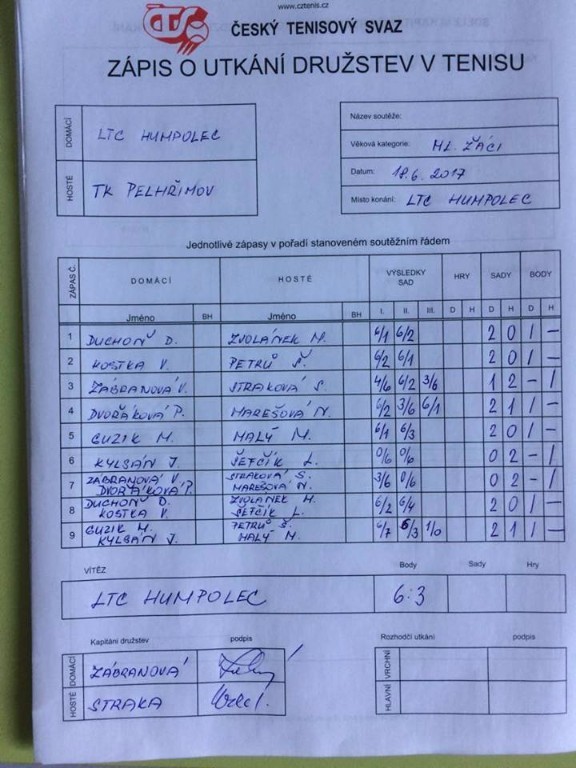 www.cztenis.cz
ČTS
ČESKÝ TENISOVÝ SVAZ
ZÁPIS O UTKÁNÍ DRUŽSTEV V TENISU
DOMÁCÍ LTC HUMPOLEC
HOSTÉ TK PELHŘIMOV
Název soutěže:
Věková kategorie: ML. ŽÁCI
Datum: 18.6.2017
Místo konání: LTC HUMPOLEC
Jednotlivé zápasy v pořadí stanoveném soutěžním řádem
ZÁPAS Č. DOMÁCÍ HOSTÉ VÝSLEDKY SAD HRY SADY BODY
Jméno BH Jméno BH I. II. III. D H D H D H
1 DUCHOŇ D. ZVOLÁNEK M. 6/1 6/2 2 0 1 –
2 KOSTKA V. PETRŮ Š. 6/2 6/1 2 0 1 –
3 ZÁBRANOVÁ V. STRAKOVÁ S. 4/6 6/2 3/6 1 2 – 1
4 DVOŘÁKOVÁ P. MAREŠOVÁ N. 6/2 3/6 6/1 2 1 1 –
5 GUZIK M. MALÝ M. 6/1 6/3 2 0 1 –
6 KYLBÁN J. ŠEFČÍK L. 0/6 0/6 0 2 – 1
7 ZÁBRANOVÁ V. DVOŘÁKOVÁ P. STRAKOVÁ S. MAREŠOVÁ N. 3/6 0/6 0 2 – 1
8 DUCHOŇ D. KOSTKA V. ZVOLÁNEK M. ŠEFČÍK L. 6/2 6/4 2 0 1 –
9 GUZIK M. KYLBÁN J. PETRŮ Š. MALÝ M. 6/7 6/3 1/0 2 1 1 –
VÍTĚZ Body Sady Hry
LTC HUMPOLEC 6:3
Kapitáni družstev podpis Rozhodčí utkání podpis
DOMÁCÍ ZÁBRANOVÁ VRCHNÍ
HOSTÉ STRAKA HLAVNÍ